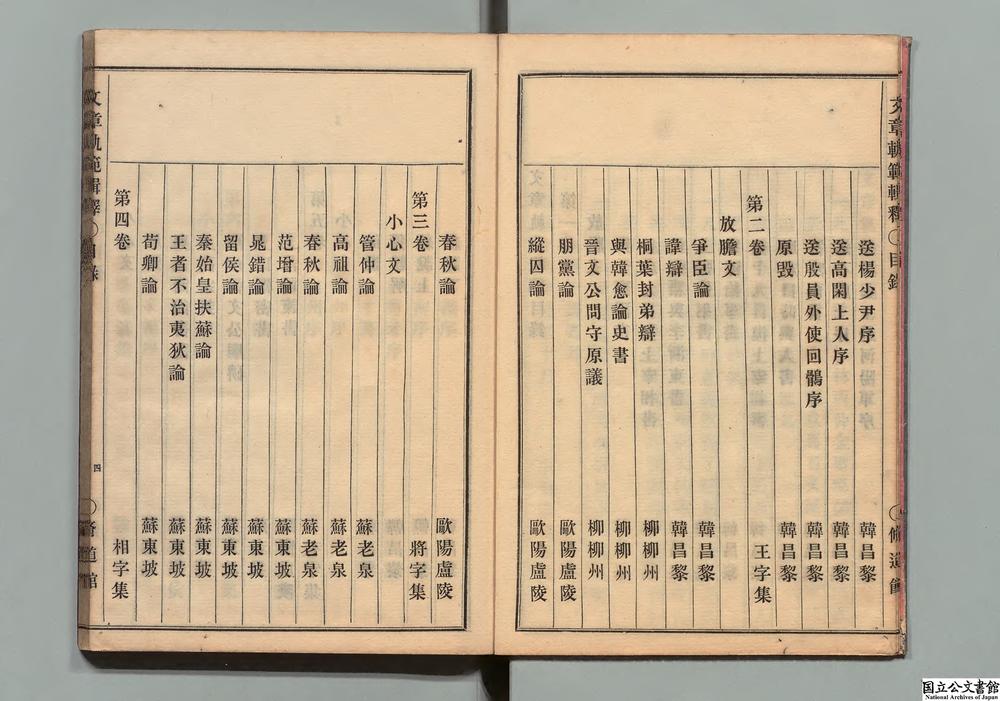 文章軌範輯釋
目錄
脩道館
送楊少尹序 韓昌黎
送高閑上人序 韓昌黎
送殷員外使回鶻序 韓昌黎
原毀 韓昌黎
第二卷 王字集
放膽文
爭臣論 韓昌黎
諱辯 韓昌黎
桐葉封弟辯 柳柳州
與韓愈論史書 柳柳州
晉文公問守原議 柳柳州
朋黨論 歐陽廬陵
縱囚論 歐陽廬陵
春秋論 歐陽廬陵
第三卷 將字集
小心文
管仲論 蘇老泉
高祖論 蘇老泉
春秋論 蘇老泉
范增論 蘇東坡
鼂錯論 蘇東坡
留侯論 蘇東坡
秦始皇扶蘇論 蘇東坡
王者不治夷狄論 蘇東坡
荀卿論 蘇東坡
第四卷 相字集
文章軌範輯釋
目錄
四
脩道館
国立公文書館
National Archives of Japan